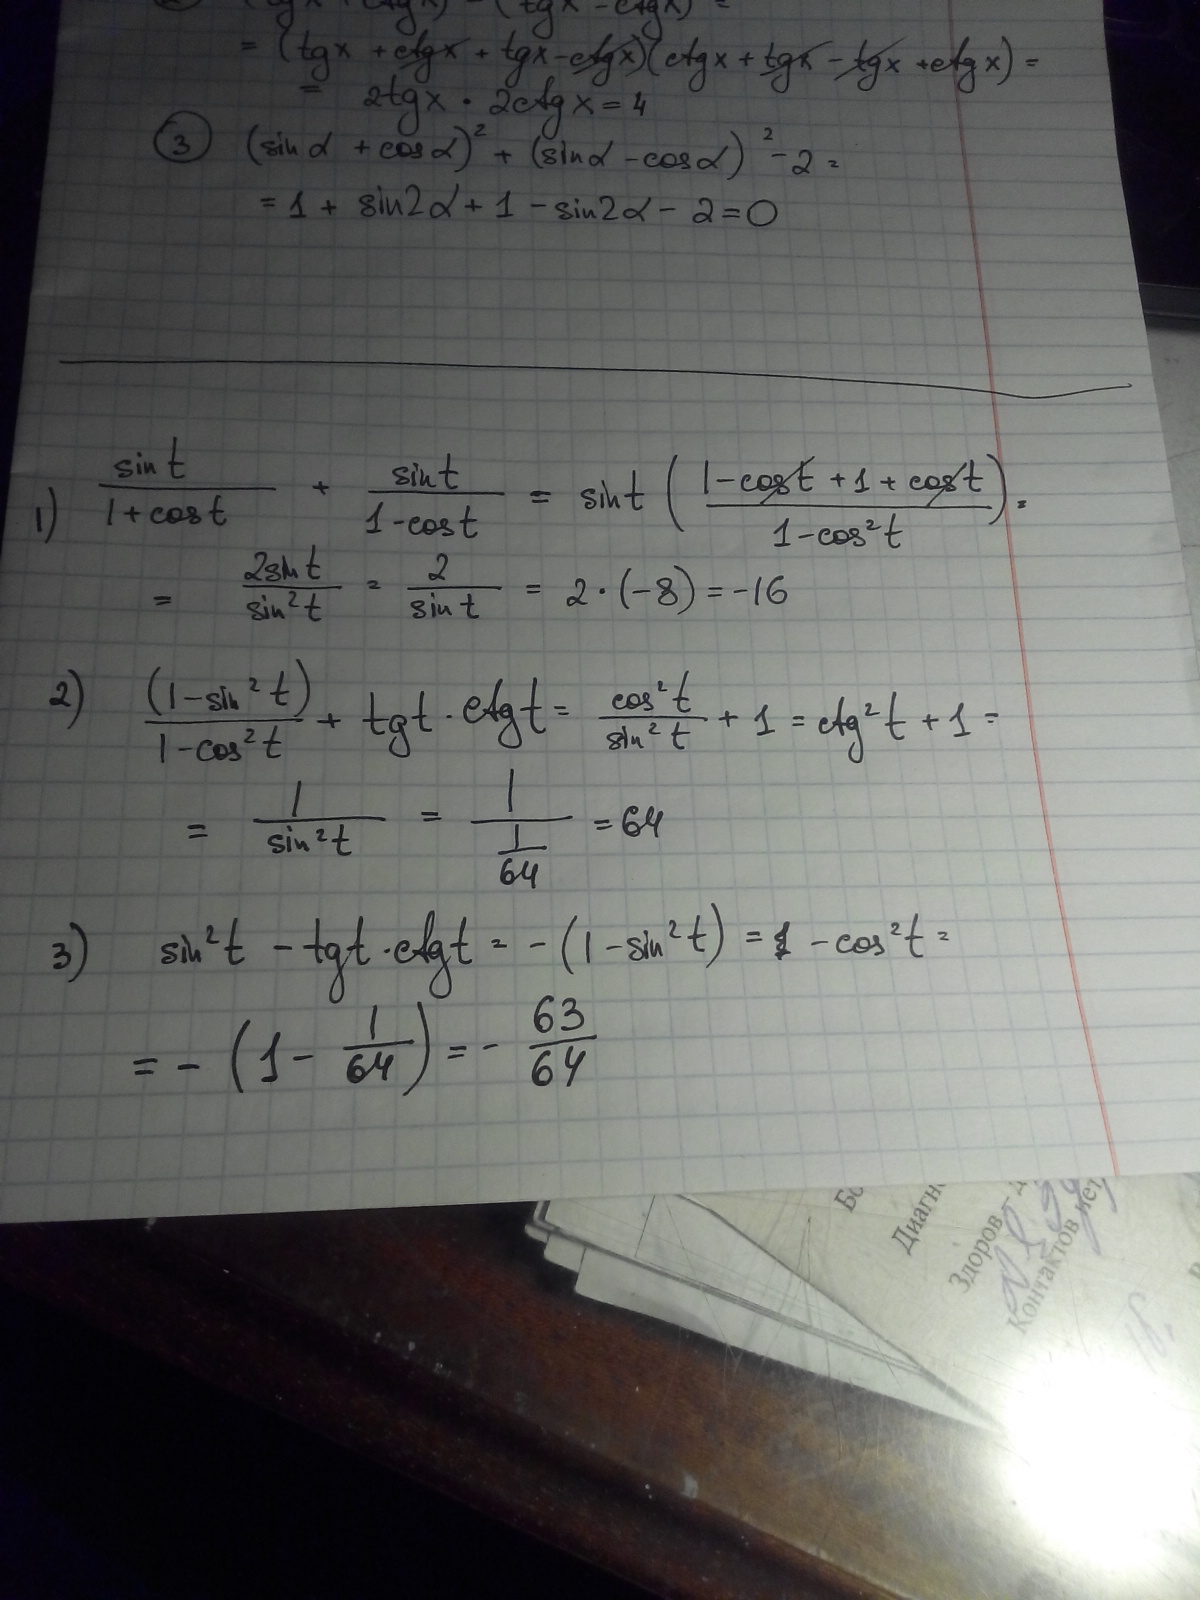 (tgx + ctgx)² - (tgx - ctgx)² =
= (tgx + ctgx + tgx - ctgx)(ctgx + tgx - tgx + ctgx) =
= 2tgx · 2ctgx = 4
③ (sinα + cosα)² + (sinα - cosα)² - 2 =
= 1 + sin2α + 1 - sin2α - 2 = 0
1) sint/(1+cost) + sint/(1-cost) = sint((1-cost+1+cost)/(1-cos²t)) =
= 2sint/sin²t = 2/sint = 2·(-8) = -16
2) (1-sin²t)/(1-cos²t) + tgt·ctgt = cos²t/sin²t + 1 = ctg²t + 1 =
= 1/sin²t = 1/(1/64) = 64
3) sin²t - tgt·ctgt = -(1-sin²t) = 1 - cos²t =
= -(1 - 1/64) = - 63/64
Диагн
Здоров
Контактов